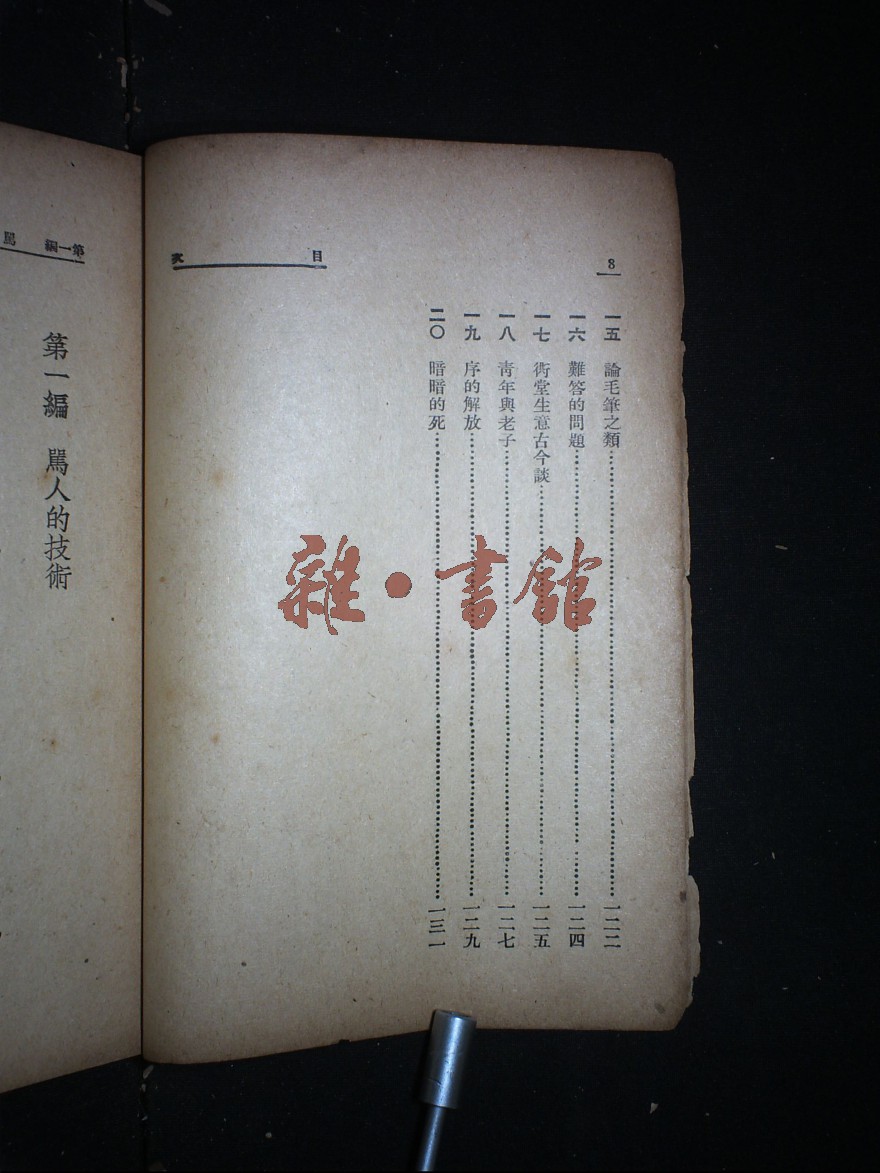 8
目次
一五 論毛筆之類……一二二
一六 難答的問題……一二四
一七 衖堂生意古今談……一二五
一八 青年與老子……一二七
一九 序的解放……一二九
二〇 暗暗的死……一三一
雜·書館
第一編 罵
第一編 罵人的技術